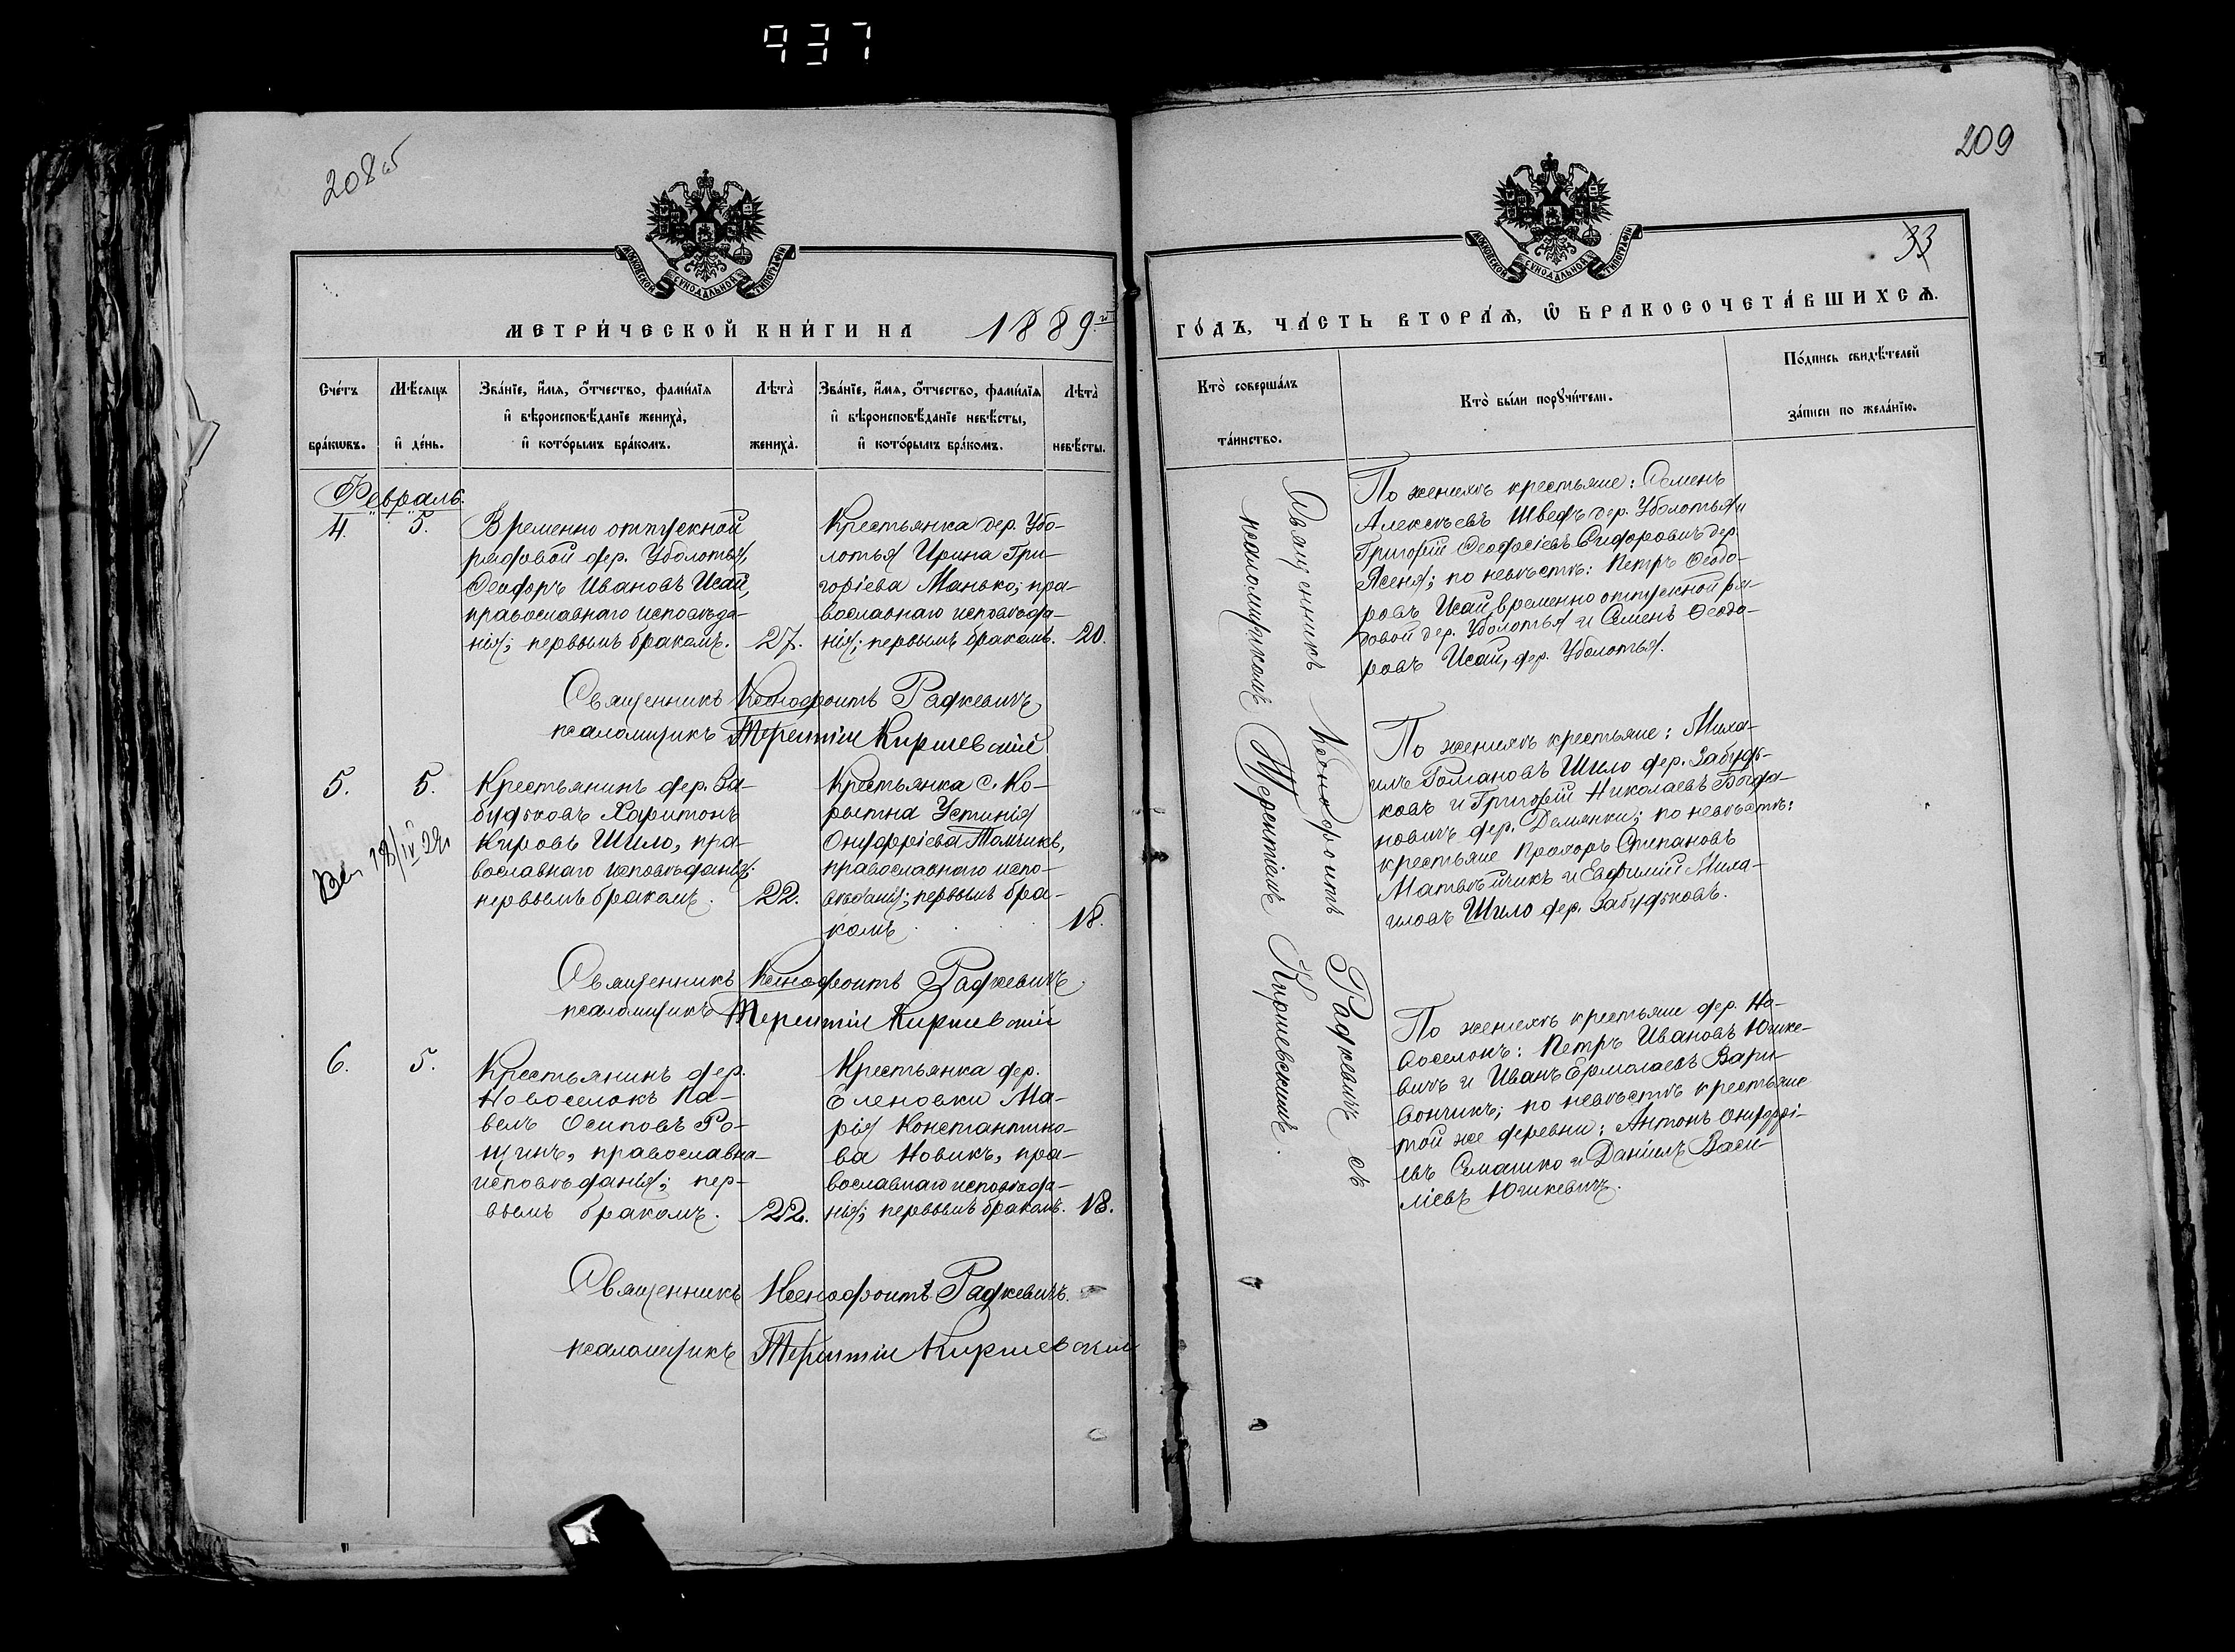 937
208 об
209
33
МОСКОВСКОЙ СУНОДАЛЬНОЙ ТИПОГРАФІИ
МОСКОВСКОЙ СУНОДАЛЬНОЙ ТИПОГРАФІИ
МЕТРИ́ЧЕСКОЙ КНИ́ГИ НА 1889 й
ГО́ДЪ, ЧА́СТЬ ВТОРА́Ѧ, Ѿ БРАКОСОЧЕТА́ВШИХСѦ.
Сче́тъ бра́кωвъ.
Мѣ́сяцъ и҆ де́нь.
Зва́нїе, и҆́мя, ѻ҆́тчество, фами́лїя
и҆ вѣроисповѣ́данїе жениха̀,
и҆ кото́рымъ бра́комъ.
Лѣта̀ жениха̀.
Зва́нїе, и҆́мя, ѻ҆́тчество, фами́лїя
и҆ вѣроисповѣ́данїе невѣ́сты,
и҆ кото́рымъ бра́комъ.
Лѣта̀ невѣ́сты.
Кто̀ соверша́лъ
та́инство.
Кто̀ бы́ли порꙋчи́тели.
По́дпись свидѣ́телей
за́писи по жела́нїю.
Февраль.
4.
5.
Временно отпускной
рядовой дер. Уболотья,
Ѳеодоръ Ивановъ Исай,
православнаго исповѣда-
нія; первымъ бракомъ.
27.
Крестьянка дер. Убо-
лотья Ирина Гри-
горіева Манько; пра-
вославнаго исповѣда-
нія; первымъ бракомъ.
20.
Священникъ Ксенофонтъ Радкевичъ
псаломщикъ Терентій Киршевскій
5.
5.
Крестьянинъ дер. За-
будьковъ Харитонъ
Кировъ Шило, пра-
вославнаго исповѣданія;
первымъ бракомъ.
22.
Крестьянка с. Ко-
рытна Устинія
Онуфріева Томчикъ,
православнаго испо-
вѣданія; первымъ бра-
комъ
18.
18/IV 22
Священникъ Ксенофонтъ Радкевичъ
псаломщикъ Терентій Киршевскій
6.
5.
Крестьянинъ дер.
Новоселокъ Па-
велъ Осиповъ Ро-
щинъ, православна-
исповѣданія; пер-
вымъ бракомъ.
22.
Крестьянка дер.
Еленовки Ма-
рія Константино-
ва Новикъ, пра-
вославнаго исповѣда-
нія; первымъ бракомъ.
18.
Священникъ Ксенофонтъ Радкевичъ.
псаломщикъ Терентій Киршевскій
Священникъ Ксенофонтъ Радкевичъ съ
псаломщикомъ Терентіемъ Киршевскимъ.
По женихѣ крестьяне: Семенъ
Алексѣевъ Шведъ дер. Уболотья и
Григорій Ѳеодосіевъ Сидоровичъ дер.
Ясеня; по невѣстѣ: Петръ Ѳеодо-
ровъ Исай, временно отпускной ря-
довой дер. Уболотья и Семенъ Ѳеодо-
ровъ Исай, дер. Уболотья.
По женихѣ крестьяне: Миха-
илъ Романовъ Шило дер. Забудь-
ковъ и Григорій Николаевъ Богда-
новичъ дер. Демянки; по невѣстѣ:
крестьяне Прохоръ Степановъ
Матвѣйчикъ и Евфимій Миха-
иловъ Шило дер. Забудьковъ.
По женихѣ крестьяне дер. Но-
воселокъ: Петръ Ивановъ Юшке-
вичъ и Иванъ Ермолаевъ Вари-
вончикъ; по невѣстѣ крестьяне
той же деревни: Антонъ Онуфрі-
евъ Семашко и Даніилъ Васи-
ліевъ Юшкевичъ.